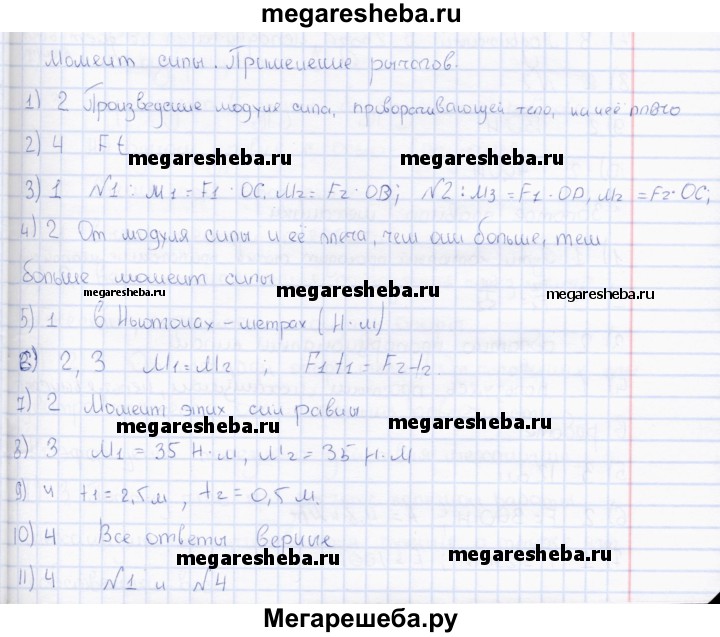 megaresheba.ru
Момент силы. Применение рычагов.
1) 2 Произведение модуля сила, приворачивающей тело, на её плечо
2) 4 F ℓ
megaresheba.ru megaresheba.ru
3) 1 №1: M1 = F1 · OC, M2 = F2 · OB; №2: M3 = F1 · OD, M2 = F2 · OC;
4) 2 От модуля силы и её плеча, чем они больше, тем
больше момент силы
megaresheba.ru megaresheba.ru megaresheba.ru
5) 1 в Ньютонах-метрах (Н·м)
6) 2, 3 M1 = M2 ; F1 ℓ1 = F2 ℓ2.
7) 2 Момент этих сил равны
megaresheba.ru megaresheba.ru
8) 3 M1 = 35 Н·м, M2 = 35 Н·м
9) 4 ℓ1 = 2,5м, ℓ2 = 0,5м.
10) 4 Все ответы верные
megaresheba.ru megaresheba.ru
11) 4 №1 и №4
Мегарешеба.ру